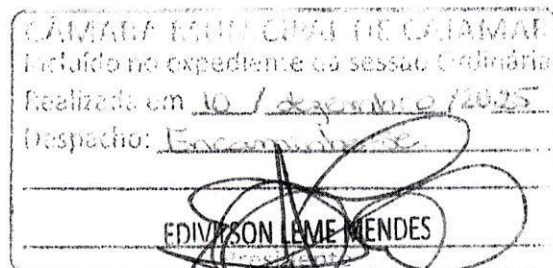 CÂMARA MUNICIPAL DE CAJAMAR
Incluído no expediente da sessão Ordinária
Realizada em 10 / dezembro /2025
Despacho: Encaminhe-se
EDIVILSON LEME MENDES
Presidente